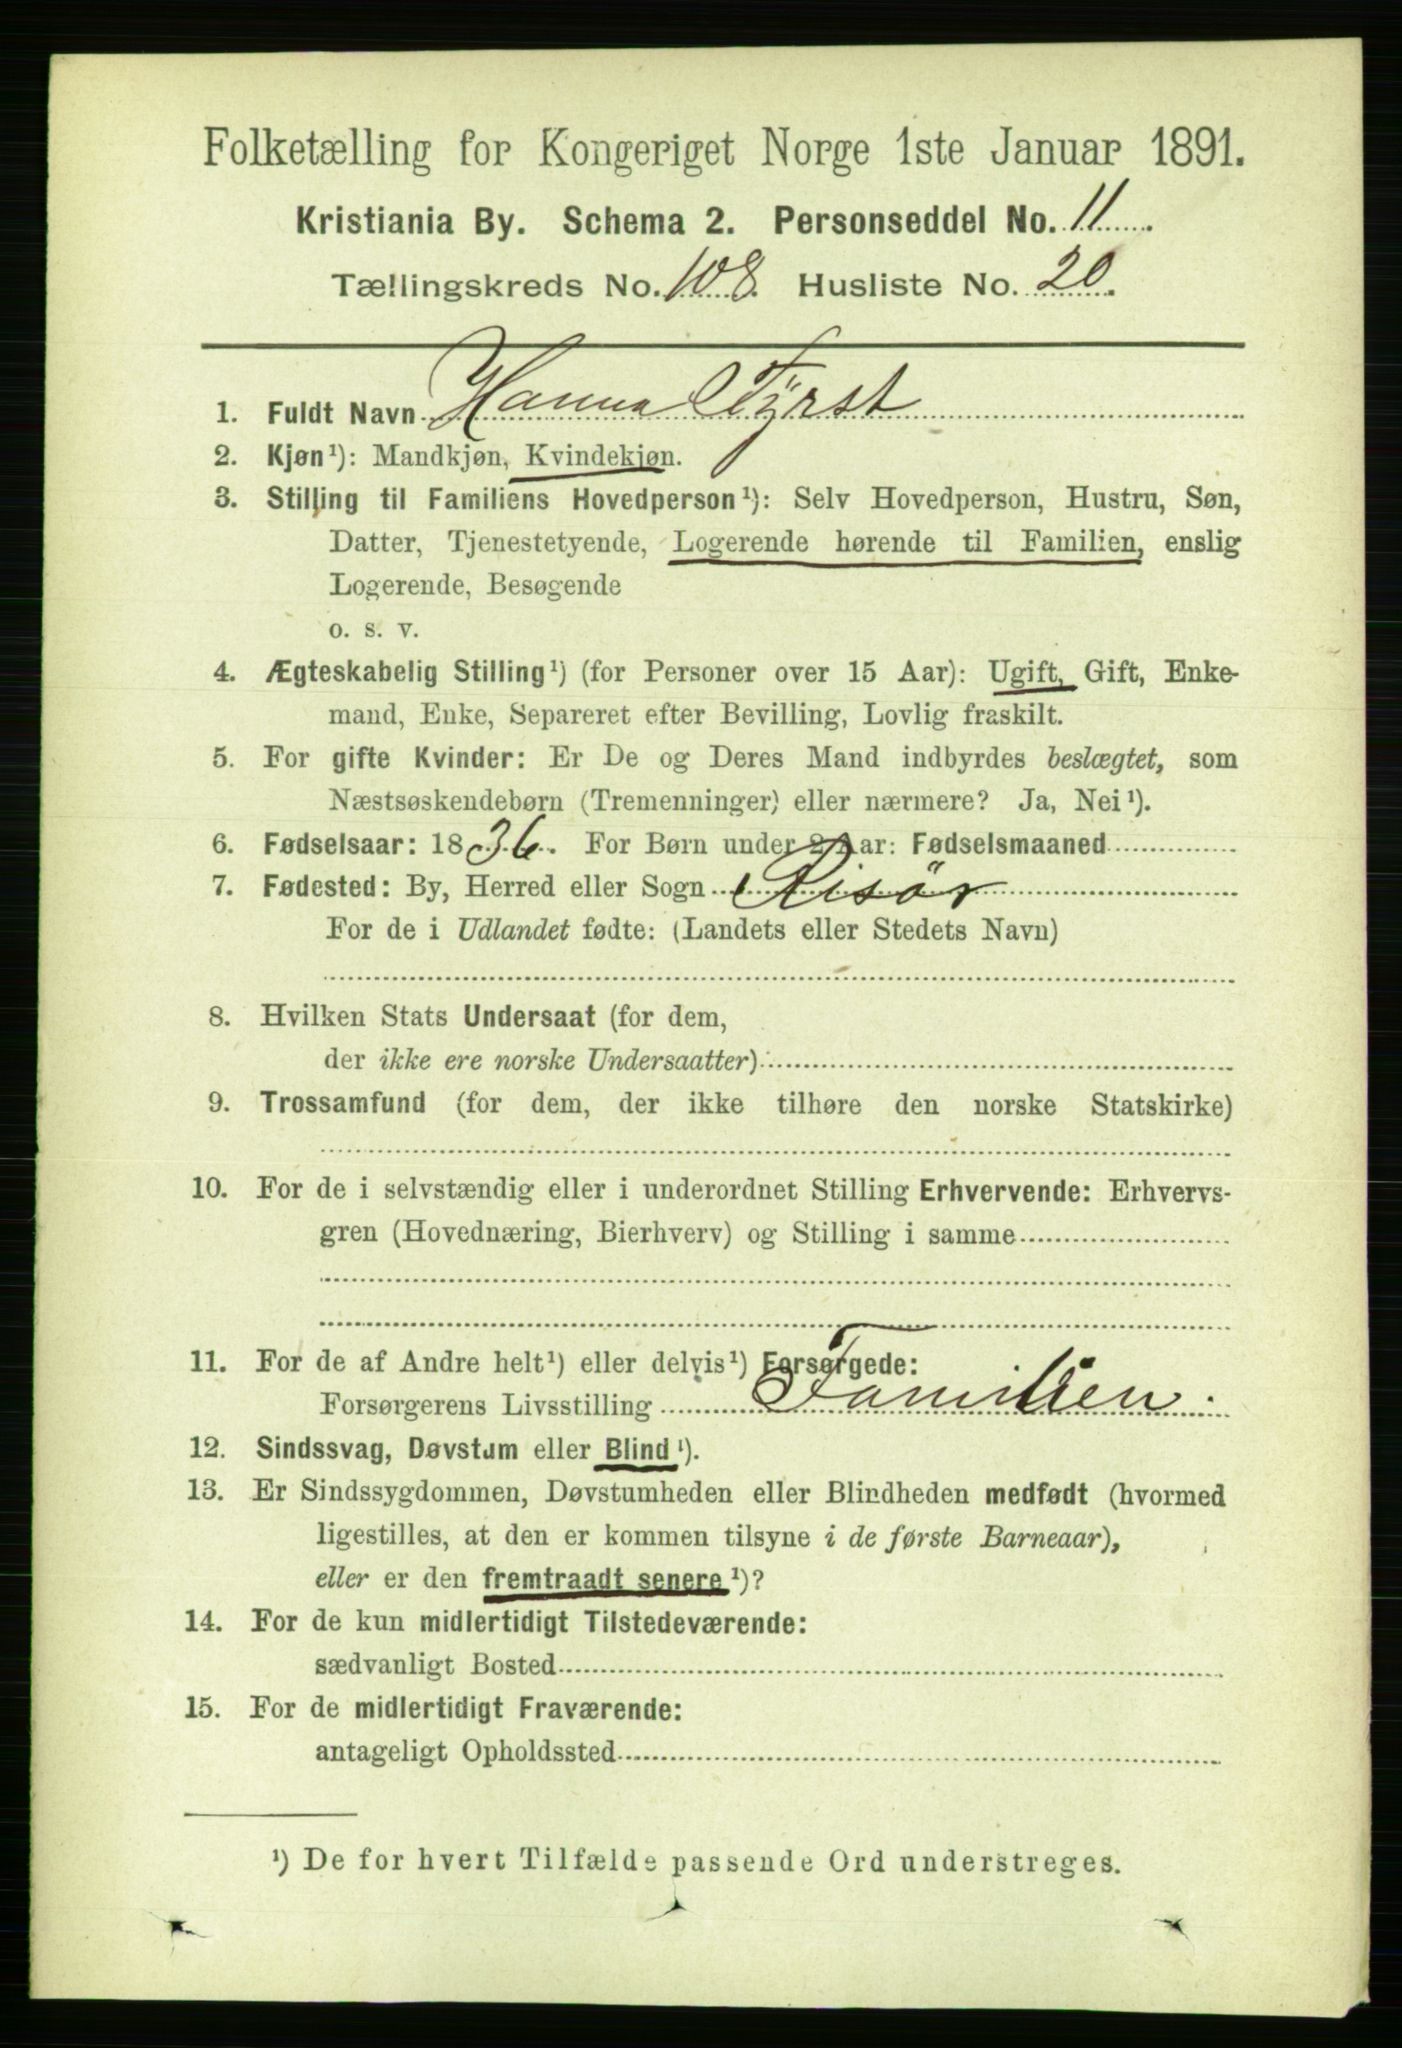 Folketælling for Kongeriget Norge 1ste Januar 1891.
Kristiania By. Schema 2. Personseddel No. 11
Tællingskreds No. 108. Husliste No. 20.
1. Fuldt Navn Hanna Fÿrst
2. Kjøn¹): Mandkjøn, Kvindekjøn.
3. Stilling til Familiens Hovedperson¹): Selv Hovedperson, Hustru, Søn,
Datter, Tjenestetyende, Logerende hørende til Familien, enslig
Logerende, Besøgende
o. s. v.
4. Ægteskabelig Stilling¹) (for Personer over 15 Aar): Ugift, Gift, Enke-
mand, Enke, Separeret efter Bevilling, Lovlig fraskilt.
5. For gifte Kvinder: Er De og Deres Mand indbyrdes beslægtet, som
Næstsøskendebørn (Tremenninger) eller nærmere? Ja, Nei¹).
6. Fødselsaar: 1836. For Børn under 2 Aar: Fødselsmaaned
7. Fødested: By, Herred eller Sogn Risör
For de i Udlandet fødte: (Landets eller Stedets Navn)
8. Hvilken Stats Undersaat (for dem,
der ikke ere norske Undersaatter)
9. Trossamfund (for dem, der ikke tilhøre den norske Statskirke)
10. For de i selvstændig eller i underordnet Stilling Erhvervende: Erhvervs-
gren (Hovednæring, Bierhverv) og Stilling i samme
11. For de af Andre helt¹) eller delvis¹) Forsørgede:
Forsørgerens Livsstilling Familien.
12. Sindssvag, Døvstum eller Blind¹).
13. Er Sindssygdommen, Døvstumheden eller Blindheden medfødt (hvormed
ligestilles, at den er kommen tilsyne i de første Barneaar),
eller er den fremtraadt senere¹)?
14. For de kun midlertidigt Tilstedeværende:
sædvanligt Bosted
15. For de midlertidigt Fraværende:
antageligt Opholdssted
¹) De for hvert Tilfælde passende Ord understreges.